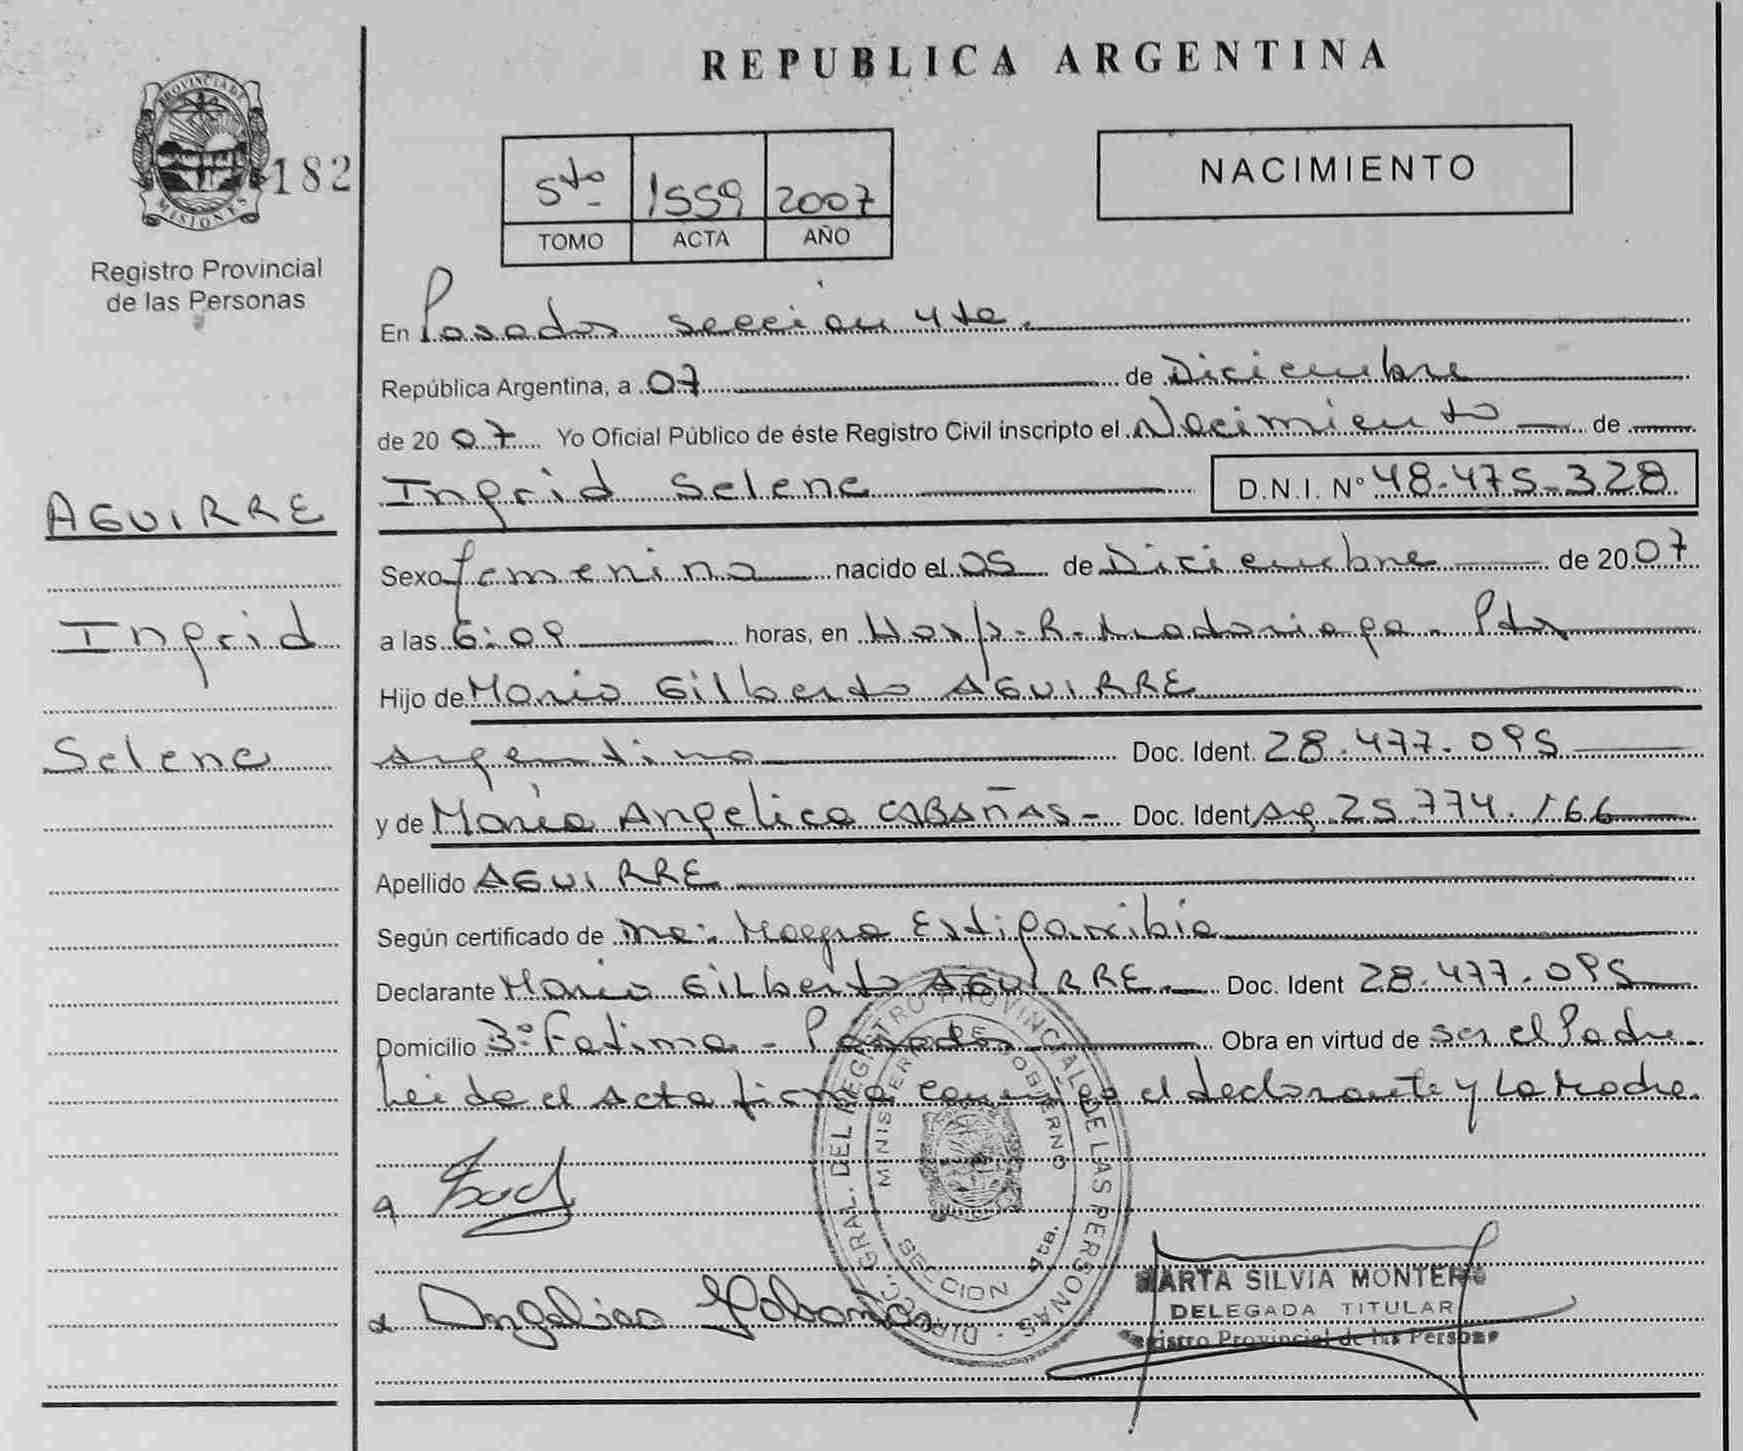 REPUBLICA ARGENTINA
PROVINCIA DE
MISIONES
182
Registro Provincial
de las Personas
5to 1559 2007
TOMO ACTA AÑO
NACIMIENTO
En Posadas sección 4ta.
República Argentina, a 07 de Diciembre
de 2007 Yo Oficial Público de éste Registro Civil inscripto el Nacimiento de
Ingrid Selene D.N.I. Nº 48.475.328
AGUIRRE
Ingrid
Selene
Sexo femenino nacido el 05 de Diciembre de 2007
a las 6:09 horas, en Hosp. R. Madariaga - Pdas
Hijo de Mario Gilberto AGUIRRE
Argentino Doc. Ident. 28.477.095
y de María Angelica CABAÑAS - Doc. Ident Ag. 25.774.166
Apellido AGUIRRE
Según certificado de
Declarante Mario Gilberto AGUIRRE Doc. Ident 28.477.095
Domicilio Bº Fatima - Posadas Obra en virtud de ser el Padre
Leida el Acta firma conmigo el declarante y la Madre.
Angelica Cabañas
DIRECC. GRAL. DEL REGISTRO PROVINCIAL DE LAS PERSONAS
MINISTERIO DE GOBIERNO
SECCION 4ta.
MARTA SILVIA MONTERO
DELEGADA TITULAR
Registro Provincial de las Personas